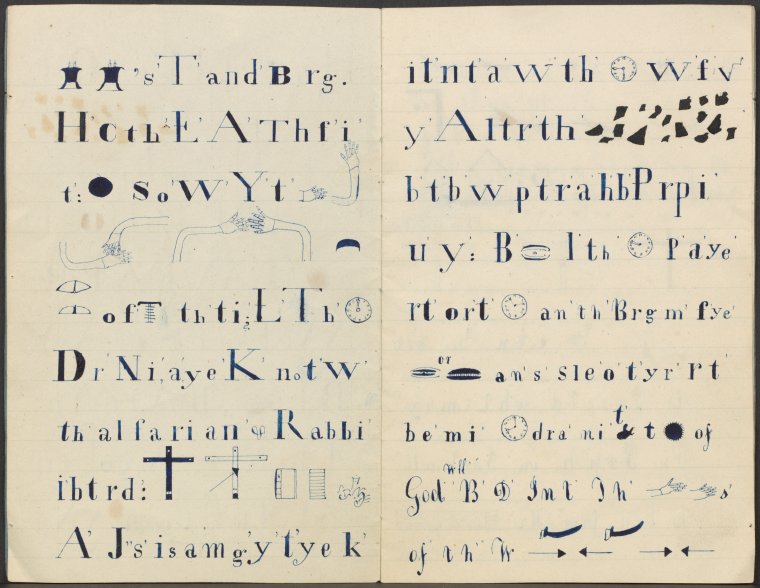 's T and B rg.
H' c th' E' A' T h f' i'
t: S o' W' Y' t'
o f T th' t i; E' T h'
D r' N i, a y e' K' n o t' w'
th' a l' f a r i' a n' & R abbi'
i b t r d:
A' J" s' i s a m g' y' t' y e k'
i t' n' t' a' w' th' W' f
y' A l t r th'
b t b w' p t r a' h b P r p i'
u y: B I th' P a y e'
r t' o r t' a n' th' B r g m' f y e'
or
a n' s' s l e' o' t' y r' r t'
b e' m i' d r a' n i' t of
will
God' B' D' I n t' I h' s'
of t h' W